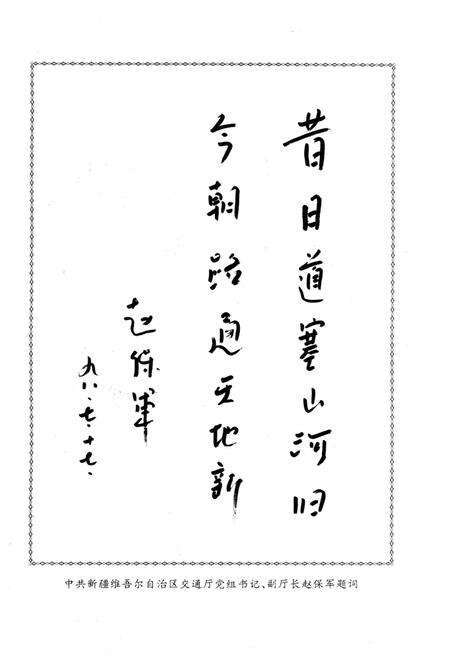 昔日道塞山河旧
今朝路通天地新
赵保军
九八.七.十七.
中共新疆维吾尔自治区交通厅党组书记、副厅长赵保军题词